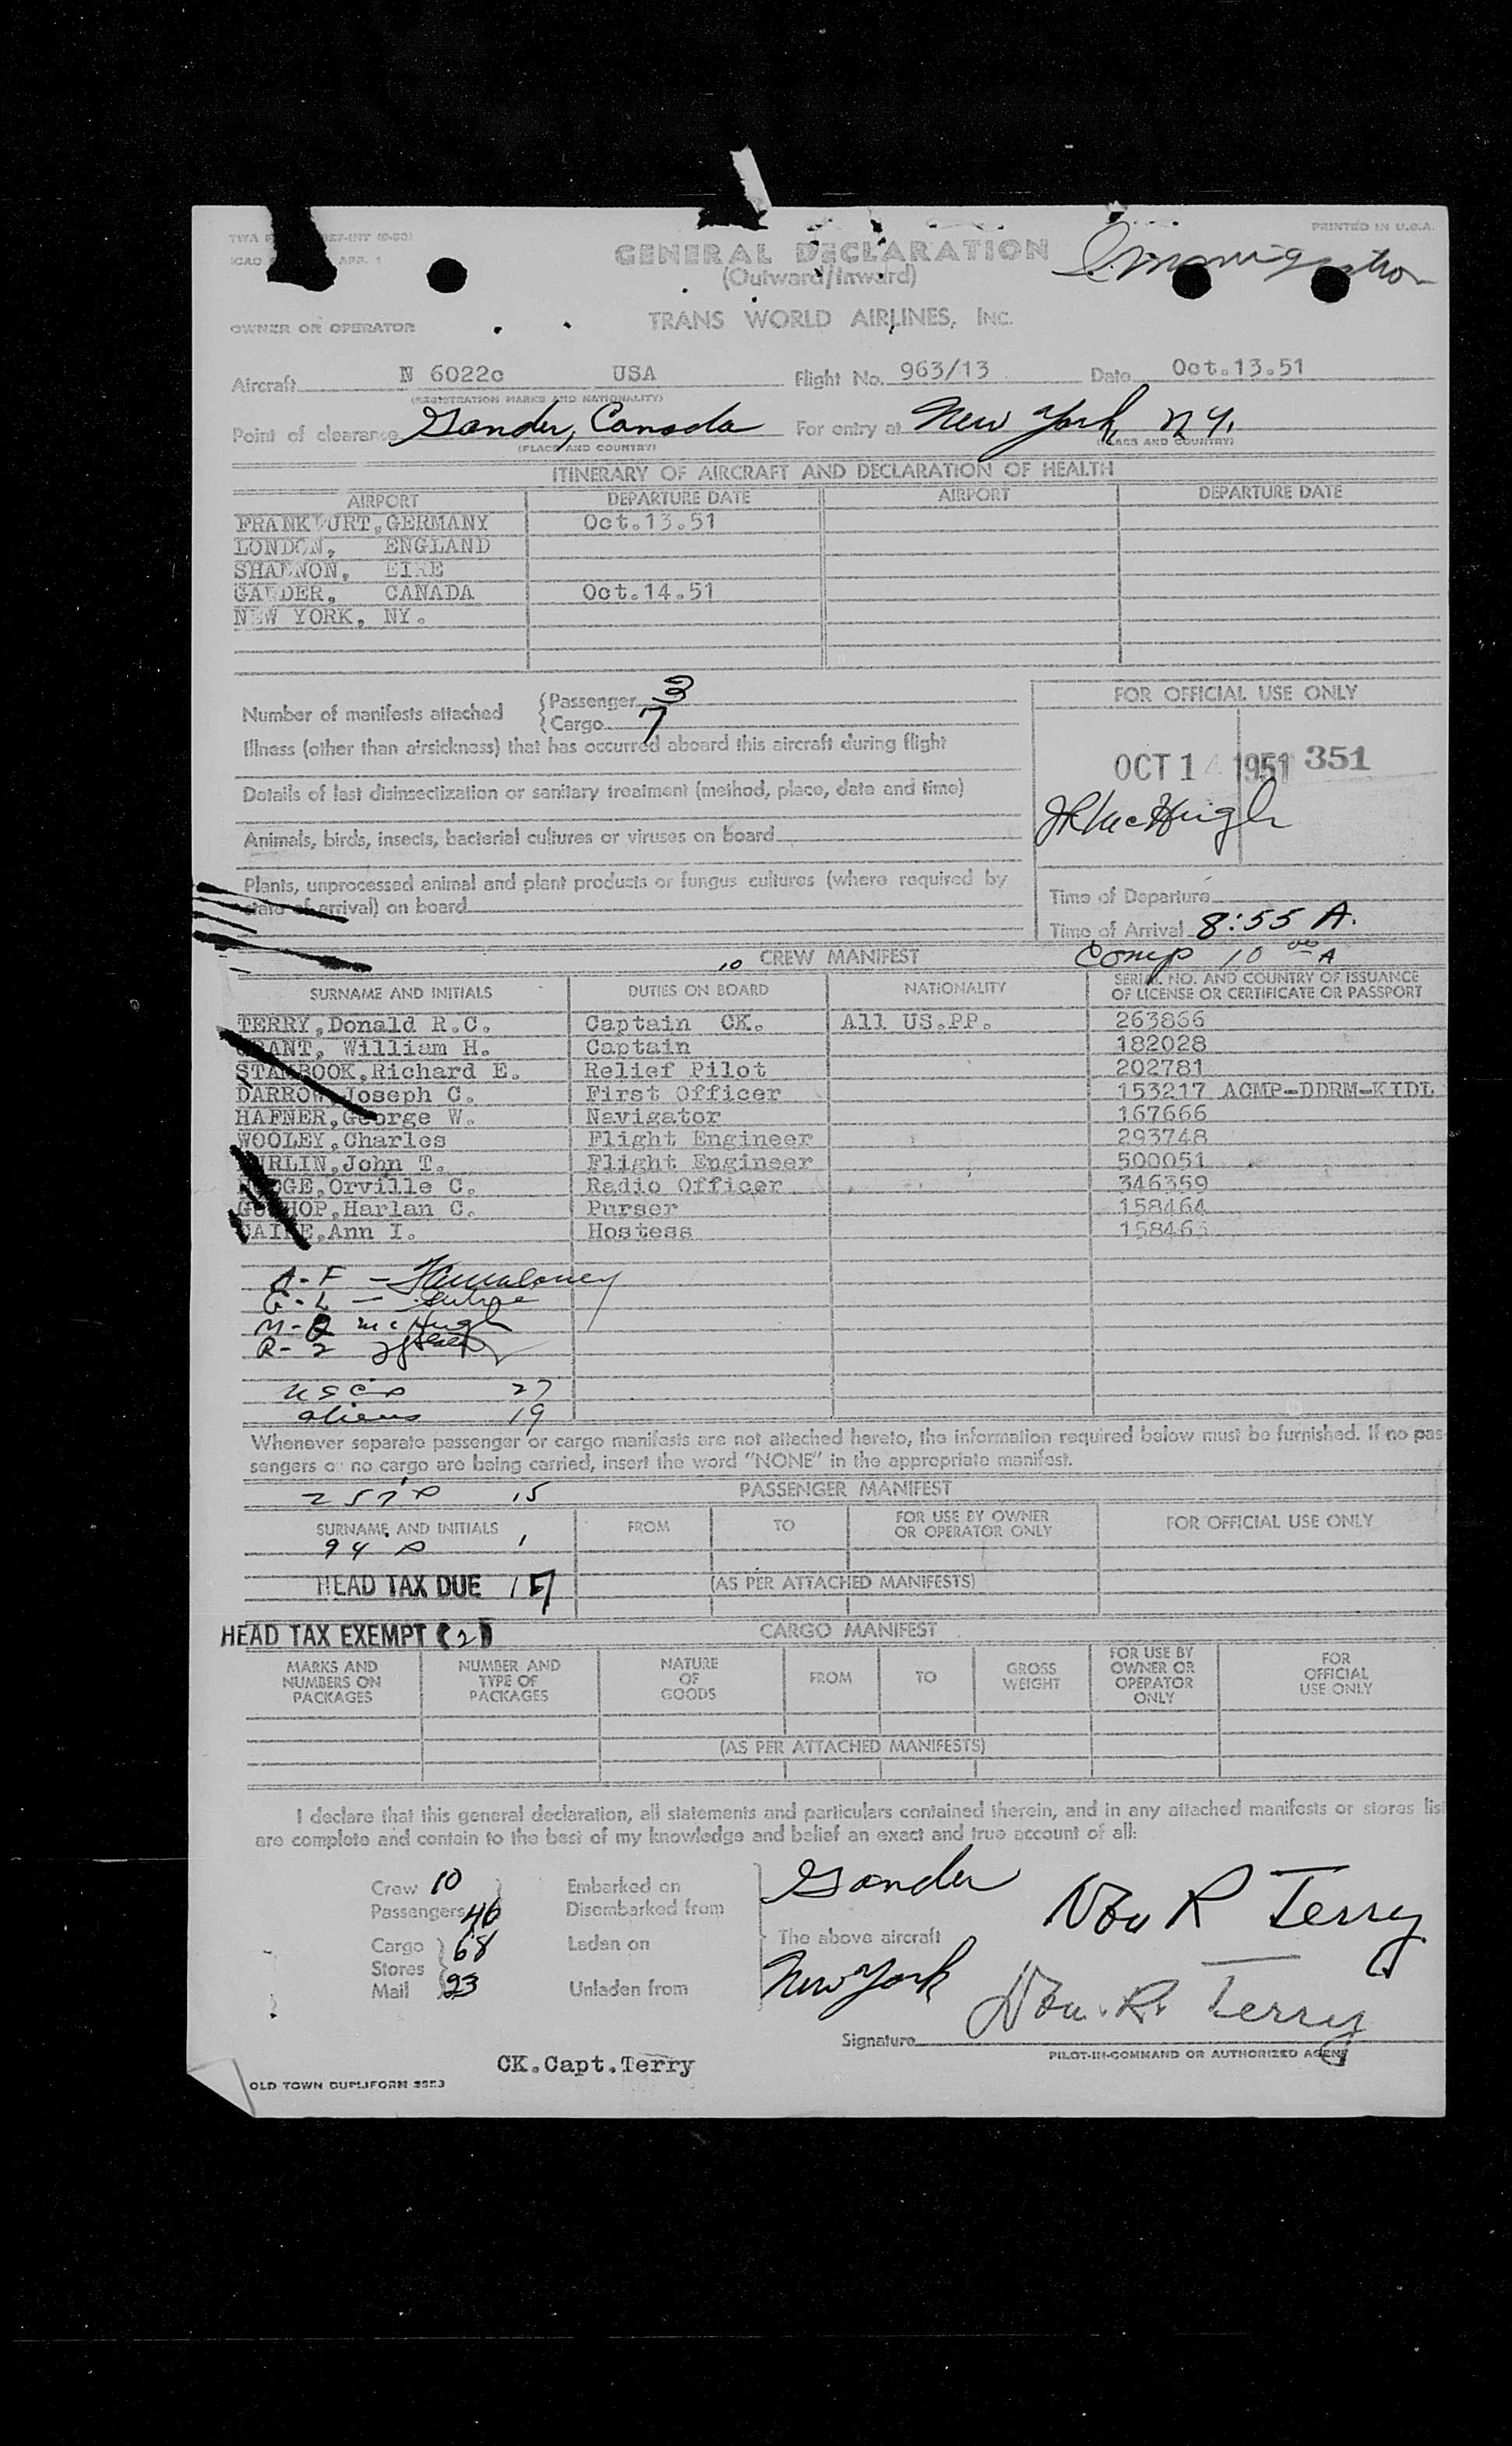 PRINTED IN U.S.A.
ICAO APP. 1
GENERAL DECLARATION
Immigration
(Outward/Inward)
OWNER OR OPERATOR
TRANS WORLD AIRLINES, INC.
Aircraft N 6022c USA Flight No. 963/13 Date Oct.13.51
(REGISTRATION MARKS AND NATIONALITY)
Point of clearance Gander, Canada For entry at New York, N.Y.
(PLACE AND COUNTRY) (PLACE AND COUNTRY)
ITINERARY OF AIRCRAFT AND DECLARATION OF HEALTH
AIRPORT DEPARTURE DATE AIRPORT DEPARTURE DATE
FRANKFURT,GERMANY Oct.13.51
LONDON, ENGLAND
SHANNON, EIRE
GANDER, CANADA Oct.14.51
NEW YORK, NY.
Number of manifests attached
Passenger 3
Cargo 7
FOR OFFICIAL USE ONLY
Illness (other than airsickness) that has occurred aboard this aircraft during flight
OCT 14 1951 351
Details of last disinsectization or sanitary treatment (method, place, date and time)
McHugh
Animals, birds, insects, bacterial cultures or viruses on board
Plants, unprocessed animal and plant products or fungus cultures (where required by
state of arrival) on board
Time of Departure
Time of Arrival 8:55 A.
10 CREW MANIFEST
Comp 10 00 A
SURNAME AND INITIALS DUTIES ON BOARD NATIONALITY SERIAL NO. AND COUNTRY OF ISSUANCE
OF LICENSE OR CERTIFICATE OR PASSPORT
TERRY,Donald R.C. Captain CK. All US.PP. 263866
GRANT, William H. Captain 182028
STANBROOK,Richard E. Relief Pilot 202781
DARROW,Joseph C. First Officer 153217 ACMP-DDRM-KIDL
HAFNER,George W. Navigator 167666
WOOLEY,Charles Flight Engineer 293748
John T. Flight Engineer 500051
Orville C. Radio Officer 346359
Harlan C. Purser 158464
Ann I. Hostess 158463
A-F -
G-L -
M-Q McHugh
R-Z
USC's 27
aliens 19
Whenever separate passenger or cargo manifests are not attached hereto, the information required below must be furnished. If no pas-
sengers or no cargo are being carried, insert the word "NONE" in the appropriate manifest.
257's 15
PASSENGER MANIFEST
SURNAME AND INITIALS FROM TO FOR USE BY OWNER
OR OPERATOR ONLY FOR OFFICIAL USE ONLY
94's 1
HEAD TAX DUE 17
(AS PER ATTACHED MANIFESTS)
HEAD TAX EXEMPT (2)
CARGO MANIFEST
MARKS AND
NUMBERS ON
PACKAGES
NUMBER AND
TYPE OF
PACKAGES
NATURE
OF
GOODS
FROM
TO
GROSS
WEIGHT
FOR USE BY
OWNER OR
OPERATOR
ONLY
FOR
OFFICIAL
USE ONLY
(AS PER ATTACHED MANIFESTS)
I declare that this general declaration, all statements and particulars contained therein, and in any attached manifests or stores list
are complete and contain to the best of my knowledge and belief an exact and true account of all:
Crew 10 Embarked on Gander
Passengers 46 Disembarked from
Don R Terry
Cargo 68 Laden on The above aircraft
Stores
Mail 23 Unladen from New York
Don. R. Terry
Signature
PILOT-IN-COMMAND OR AUTHORIZED AGENT
CK.Capt.Terry
OLD TOWN DUPLIFORM